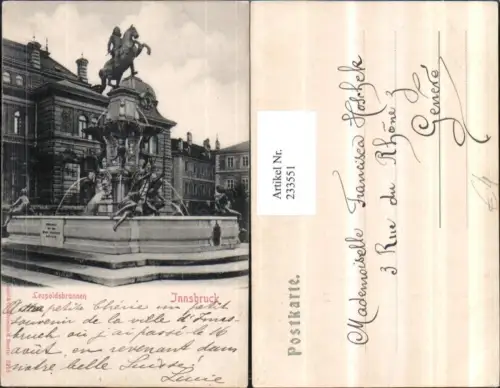 Leopoldsbrunnen
Innsbruck
A ma petite chérie un petit
souvenir de la ville d'Inns-
bruck où j'ai passé le 16
août, en revenant dans
notre belle Suisse!
Lucie
Artikel Nr.
233551
Postkarte.
Mademoiselle Francisca Holchek
3 Rue du Rhône 3
Genève